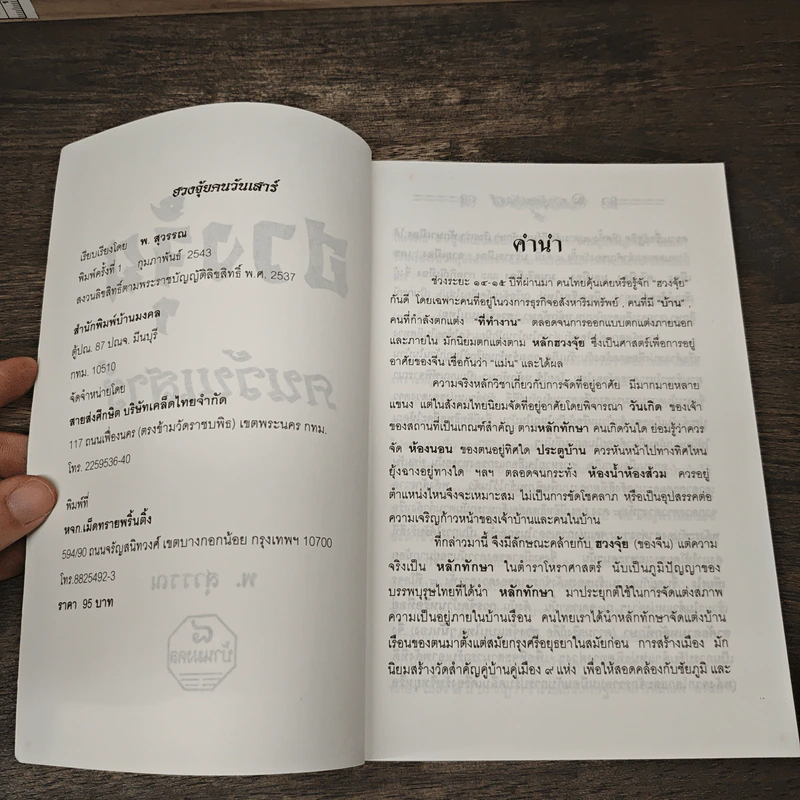 ฮวงจุ้ยคนวันเสาร์
เรียบเรียงโดย พ. สุวรรณ
พิมพ์ครั้งที่ 1 กุมภาพันธ์ 2543
สงวนลิขสิทธิ์ตามพระราชบัญญัติลิขสิทธิ์ พ.ศ. 2537
สำนักพิมพ์บ้านมงคล
ตู้ปณ. 87 ปณจ. มีนบุรี
กทม. 10510
จัดจำหน่ายโดย
สายส่งศึกษิต บริษัทเคล็ดไทยจำกัด
117 ถนนเฟื่องนคร (ตรงข้ามวัดราชบพิธ) เขตพระนคร กทม.
โทร. 2259536-40
พิมพ์ที่
หจก.เม็ดทรายพริ้นติ้ง
594/90 ถนนจรัญสนิทวงศ์ เขตบางกอกน้อย กรุงเทพฯ 10700
โทร.8825492-3
ราคา 95 บาท
คำนำ
ช่วงระยะ ๑๔-๑๕ ปีที่ผ่านมา คนไทยคุ้นเคยหรือรู้จัก "ฮวงจุ้ย"
กันดี โดยเฉพาะคนที่อยู่ในวงการธุรกิจอสังหาริมทรัพย์ , คนที่มี "บ้าน"
คนที่กำลังตกแต่ง "ที่ทำงาน" ตลอดจนการออกแบบตกแต่งภายนอก
และภายใน มักนิยมตกแต่งตาม หลักฮวงจุ้ย ซึ่งเป็นศาสตร์เพื่อการอยู่
อาศัยของจีน เชื่อกันว่า "แม่น" และได้ผล
ความจริงหลักวิชาเกี่ยวกับการจัดที่อยู่อาศัย มีมากมายหลาย
แขนง แต่ในสังคมไทยนิยมจัดที่อยู่อาศัยโดยพิจารณา วันเกิด ของเจ้า
ของสถานที่เป็นเกณฑ์สำคัญ ตามหลักทักษา คนเกิดวันใด ย่อมรู้ว่าควร
จัด ห้องนอน ของตนอยู่ทิศใด ประตูบ้าน ควรหันหน้าไปทางทิศไหน
ยุ้งฉางอยู่ทางใด ฯลฯ ตลอดจนกระทั่ง ห้องน้ำห้องส้วม ควรอยู่
ตำแหน่งไหนจึงจะเหมาะสม ไม่เป็นการขัดโชคลาภ หรือเป็นอุปสรรคต่อ
ความเจริญก้าวหน้าของเจ้าบ้านและคนในบ้าน
ที่กล่าวมานี้ จึงมีลักษณะคล้ายกับ ฮวงจุ้ย (ของจีน) แต่ความ
จริงเป็น หลักทักษา ในตำราโหราศาสตร์ นับเป็นภูมิปัญญาของ
บรรพบุรุษไทยที่ได้นำ หลักทักษา มาประยุกต์ใช้ในการจัดแต่งสภาพ
ความเป็นอยู่ภายในบ้านเรือน คนไทยเราได้นำหลักทักษาจัดแต่งบ้าน
เรือนของตนมาตั้งแต่สมัยกรุงศรีอยุธยาในสมัยก่อน การสร้างเมือง มัก
นิยมสร้างวัดสำคัญคู่บ้านคู่เมือง ๙ แห่ง เพื่อให้สอดคล้องกับชัยภูมิ และ